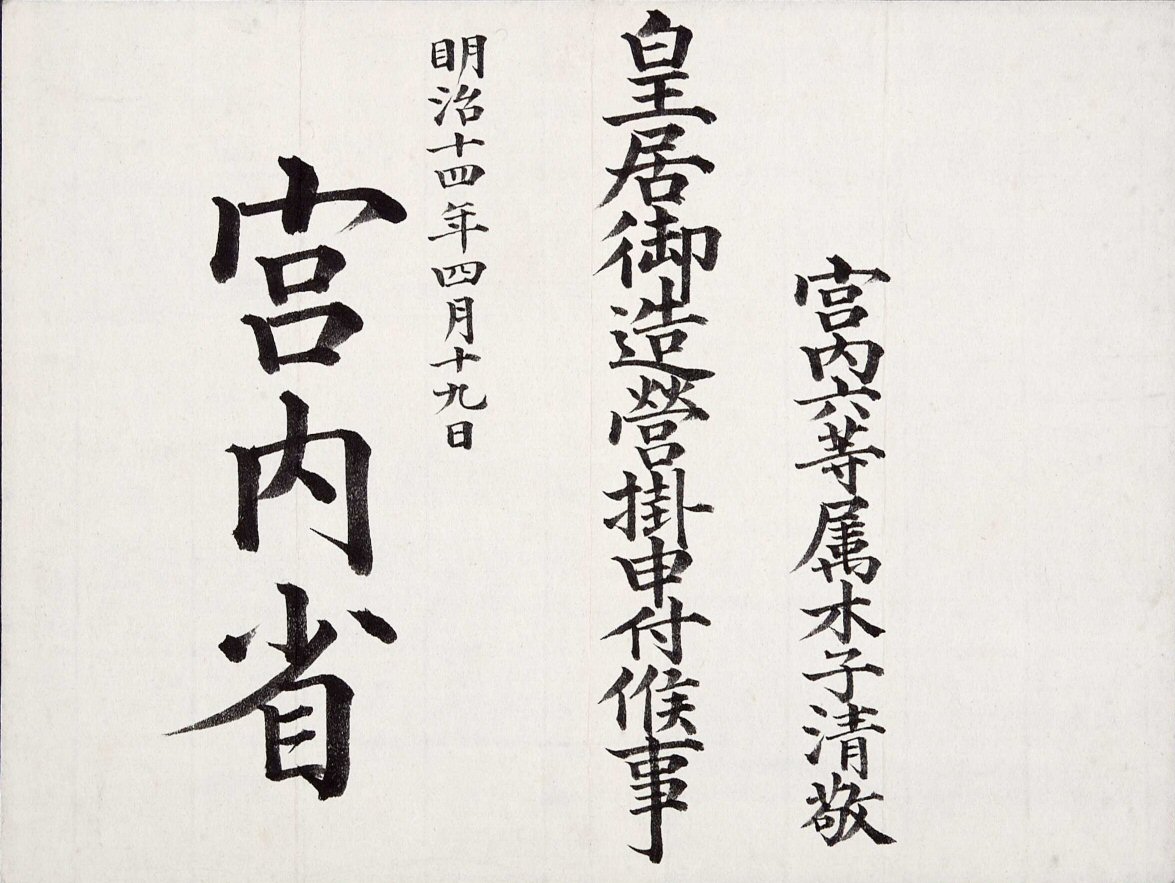 宮内六等属木子清敬
皇居御造營掛申付候事
明治十四年四月十九日
宮内省